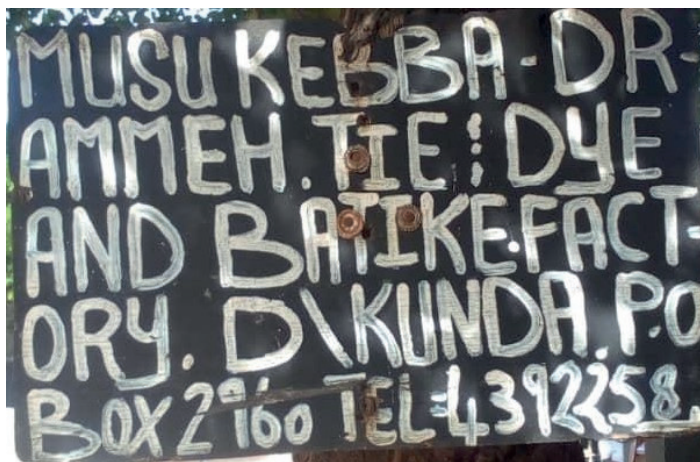 MUSU KEBBA-DR-
AMMEH.TIE:DYE
AND BATIKE.FACT-
ORY. D\KUNDA.P.O
BOX 2960 TEL=4392258